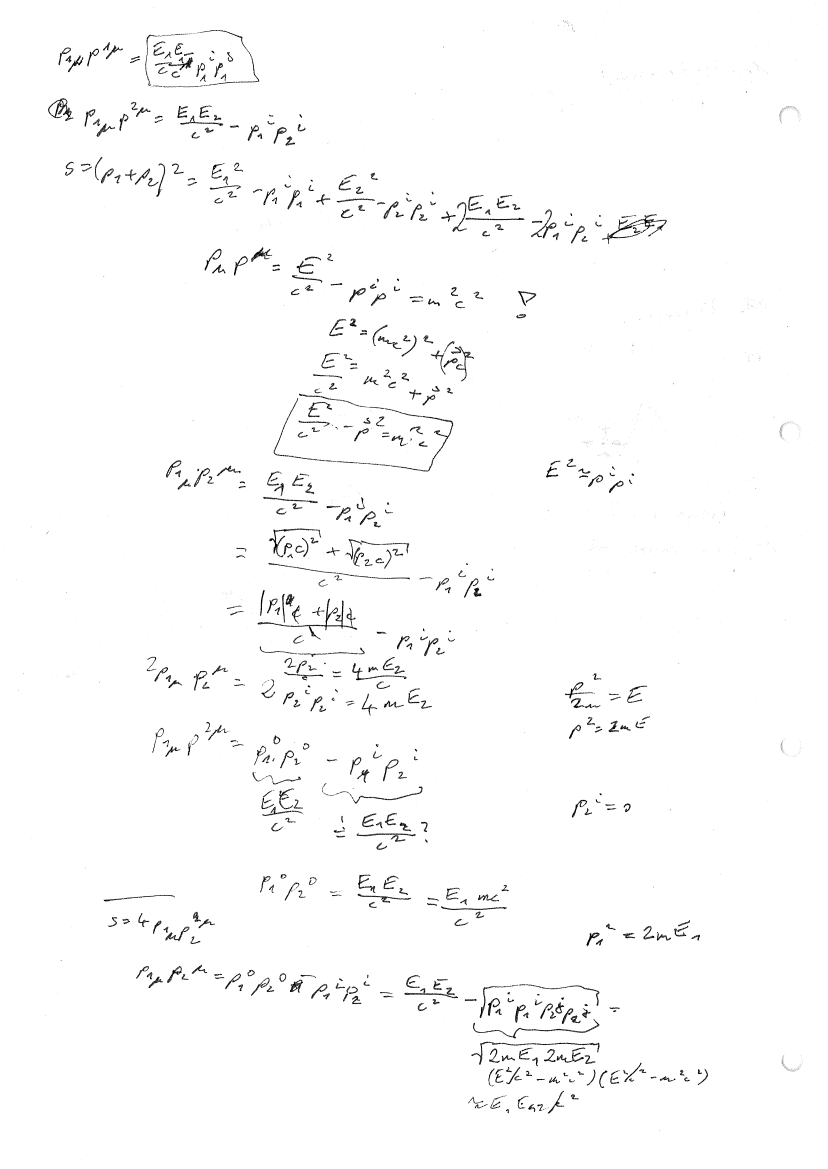 p₁μ p¹μ = E₁E₁/cc p₁ⁱp₁ʲ
p₁μ p²μ = E₁E₂/c² - p₁ⁱ p₂ⁱ
s = (p₁+p₂)² = E₁²/c² - p₁ⁱp₁ⁱ + E₂²/c² - p₂ⁱp₂ⁱ + 2E₁E₂/c² - 2p₁ⁱp₂ⁱ
pμ pμ = E²/c² - pⁱpⁱ = m²c² !
E² = (mc²)² + (p⃗c)²
E²/c² = m²c² + p⃗²
E²/c² - p⃗² = m²c²
p₁μ p₂μ = E₁E₂/c² - p₁ⁱp₂ⁱ
E² ≈ pⁱpⁱ
= √(p₁c)² + √(p₂c)² / c² - p₁ⁱp₂ⁱ
= |p₁|c + |p₂|c / c - p₁ⁱp₂ⁱ
2p₁μ p₂μ = 2p₂ⁱ = 4mE₂/c
2 p₂ⁱp₂ⁱ = 4mE₂
p²/2m = E
p² = 2mE
p₁μ p²μ = p₁⁰p₂⁰ - p₁ⁱp₂ⁱ
E₁E₂/c² = E₁E₂/c² ?
p₂ⁱ = 0
p₁⁰p₂⁰ = E₁E₂/c² = E₁mc²/c²
s = 4p₁μp₂μ
p₁² = 2mE₁
p₁μ p₂μ = p₁⁰p₂⁰ - p₁ⁱp₂ⁱ = E₁E₂/c² - √p₁ⁱp₁ⁱp₂ʲp₂ʲ =
√2mE₁2mE₂
(E²/c² - m²c²)(E²/c² - m²c²)